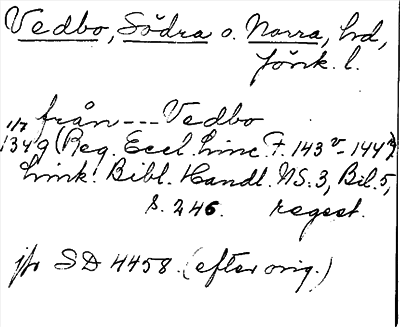 Vedbo, Södra o. Norra, hd,
Jönk. l.
från --- Vedbo
1/7 1349 (Reg. Eccl. Linc. F. 143v-144r)
Link. Bibl. Handl. NS. 3, Bil. 5,
s. 246. regest.
jfr SD 4458. (efter orig.)